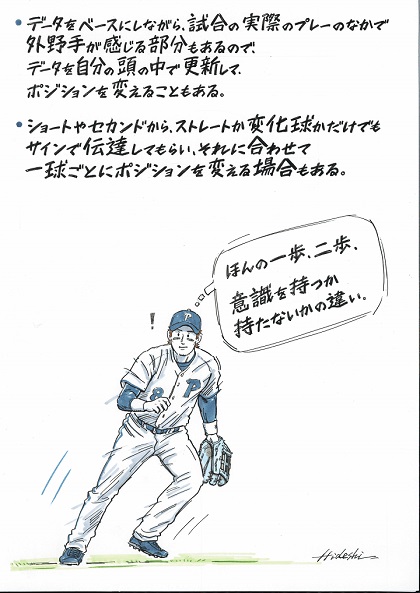 • データをベースにしながら、試合の実際のプレーのなかで
外野手が感じる部分もあるので、
データを自分の頭の中で更新して、
ポジションを変えることもある。
• ショートやセカンドから、ストレートか変化球かだけでも
サインで伝達してもらい、それに合わせて
一球ごとにポジションを変える場合もある。
ほんの一歩、二歩、
意識を持つか
持たないかの違い。
!
P
8 P
Hideshi